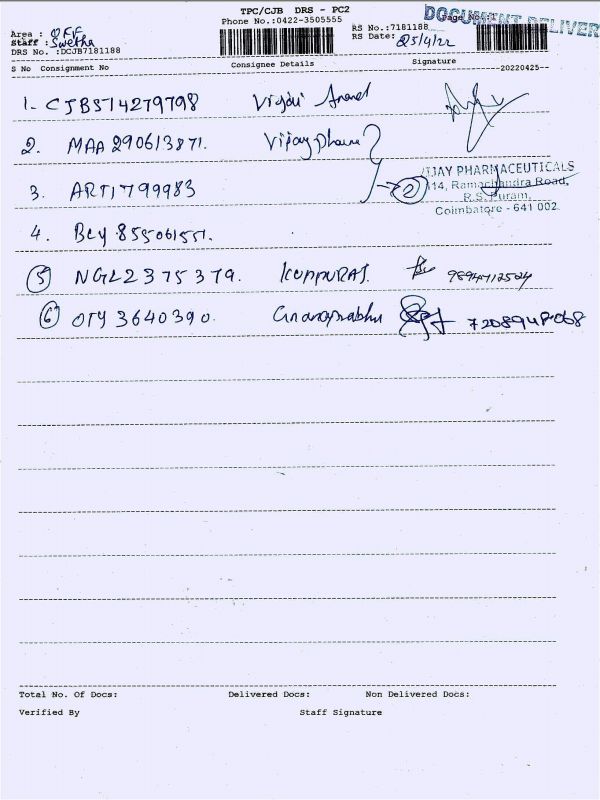 TPC/CJB DRS - PC2
Phone No.:0422-3505555
DOCUMENT DELIVER
Page No.:1
Area : OFF
Staff : Swetha
DRS No. :DCJB7181188
RS No.:7181188
RS Date: 25/4/22
S No Consignment No Consignee Details Signature
20220425
1. CJB514279798 Anand
2. MAA 290613871. Vijay pharm
3. ART1799983 2
VIJAY PHARMACEUTICALS
114, Ramachandra Road,
R.S. Puram,
Coimbatore - 641 002
4. BLY 855061551.
5 NGL2375379. KUPPURAJ.
6 OTY 3640390. Gnanaprabhu
Total No. Of Docs: Delivered Docs: Non Delivered Docs:
Verified By Staff Signature